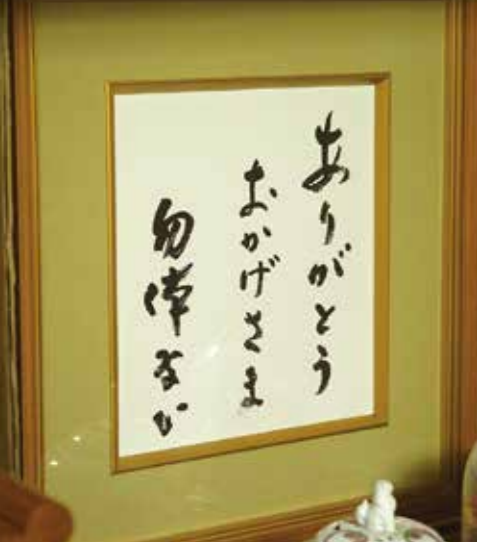 ありがとう
おかげさま
勿体ない